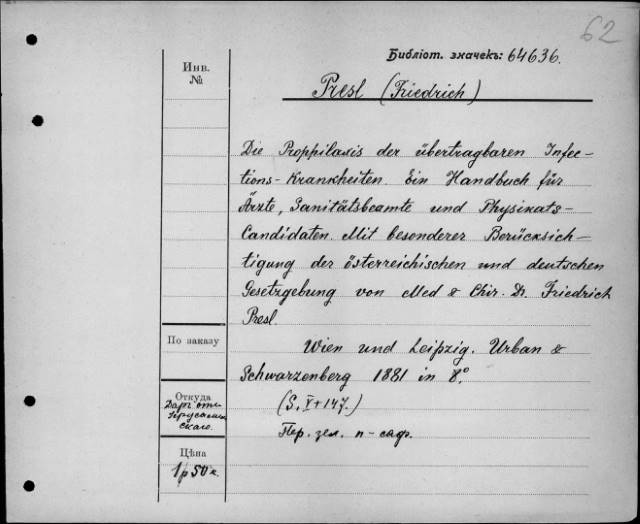 62
Библіот. значекъ: 64636.
Инв.
№
Presl (Friedrich)
Die Prophilaxis der übertragbaren Infec-
tions-Krankheiten. Ein Handbuch für
Ärzte, Sanitätsbeamte und Physikats-
Candidaten. Mit besonderer Berücksich-
tigung der österreichischen und deutschen
Gesetzgebung von Med & Chir. Dr. Friedrich
Presl.
По заказу
Wien und Leipzig. Urban &
Schwarzenberg 1881 in 8.°
Откуда
(S. V+147.)
Даръ отъ
Пер. зел. п-саф.
Цѣна
1р 50к.